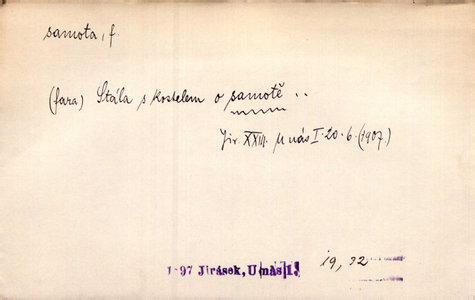 samota, f.
(fara) Stála s kostelem o samotě ..
Jir. XXIII. U nás I. 20. 6. (1907.)
1-97 Jirásek, U nás I.
19, 32